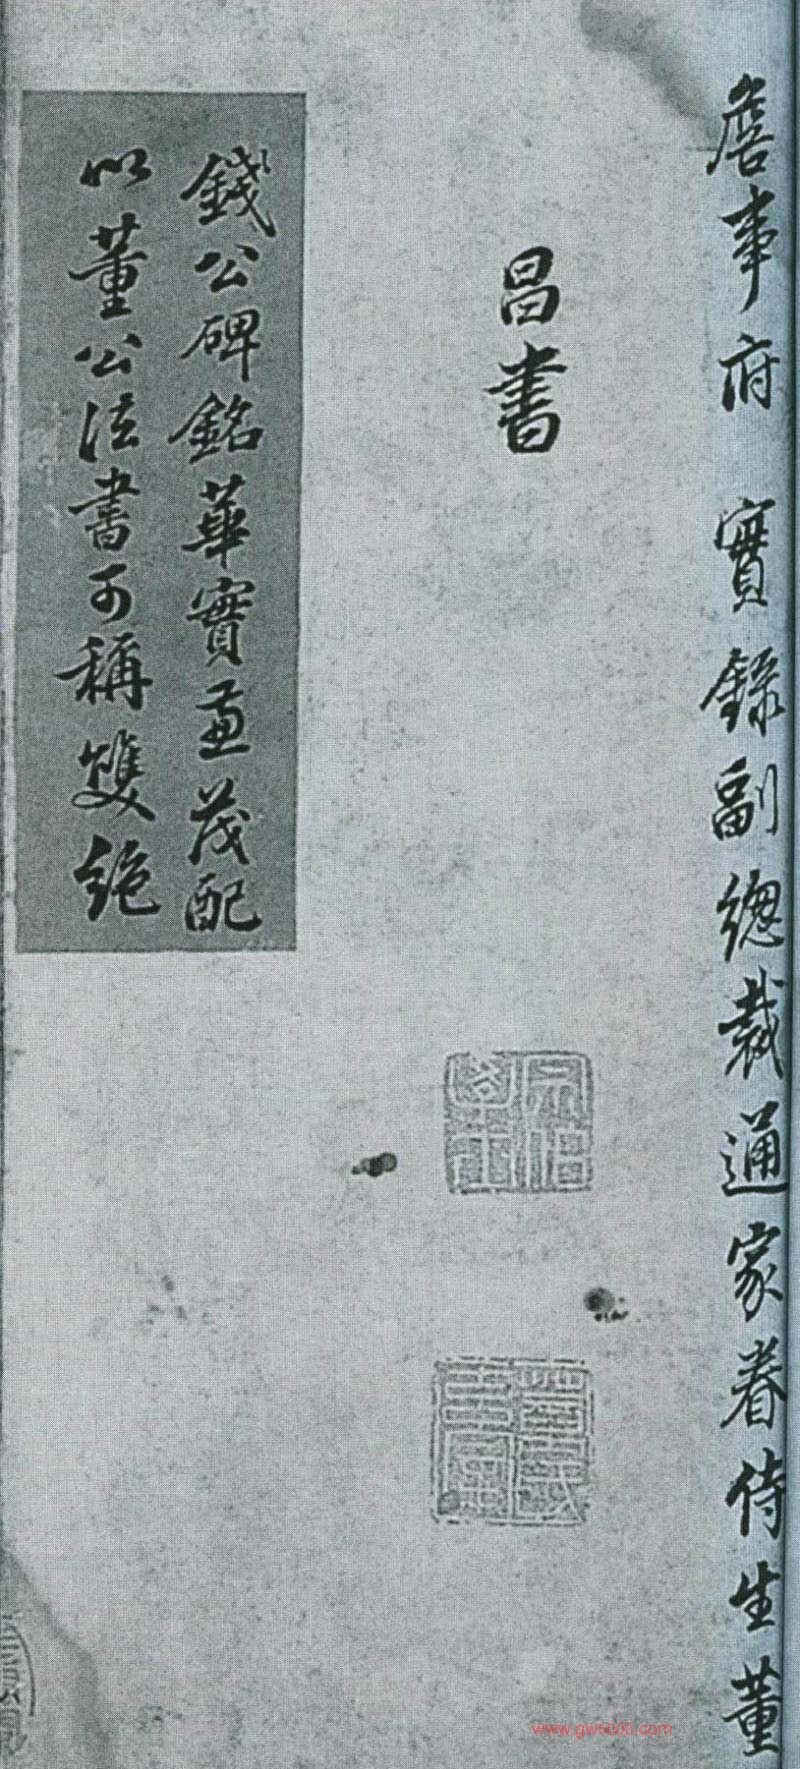 詹事府 實錄副總裁通家眷侍生董
昌書
錢公碑銘華實並茂配
以董公法書可稱雙絕